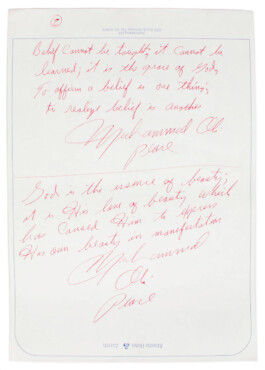 Belief cannot be taught, it cannot be
learned; it is the grace of God,
To affirm a belief is one thing;
to realize belief is another
Muhammad Ali
Peace
God is the essence of beauty;
it is His love of beauty which
has caused Him to express
His own beauty in manifestation
Muhammad
Ali
Peace